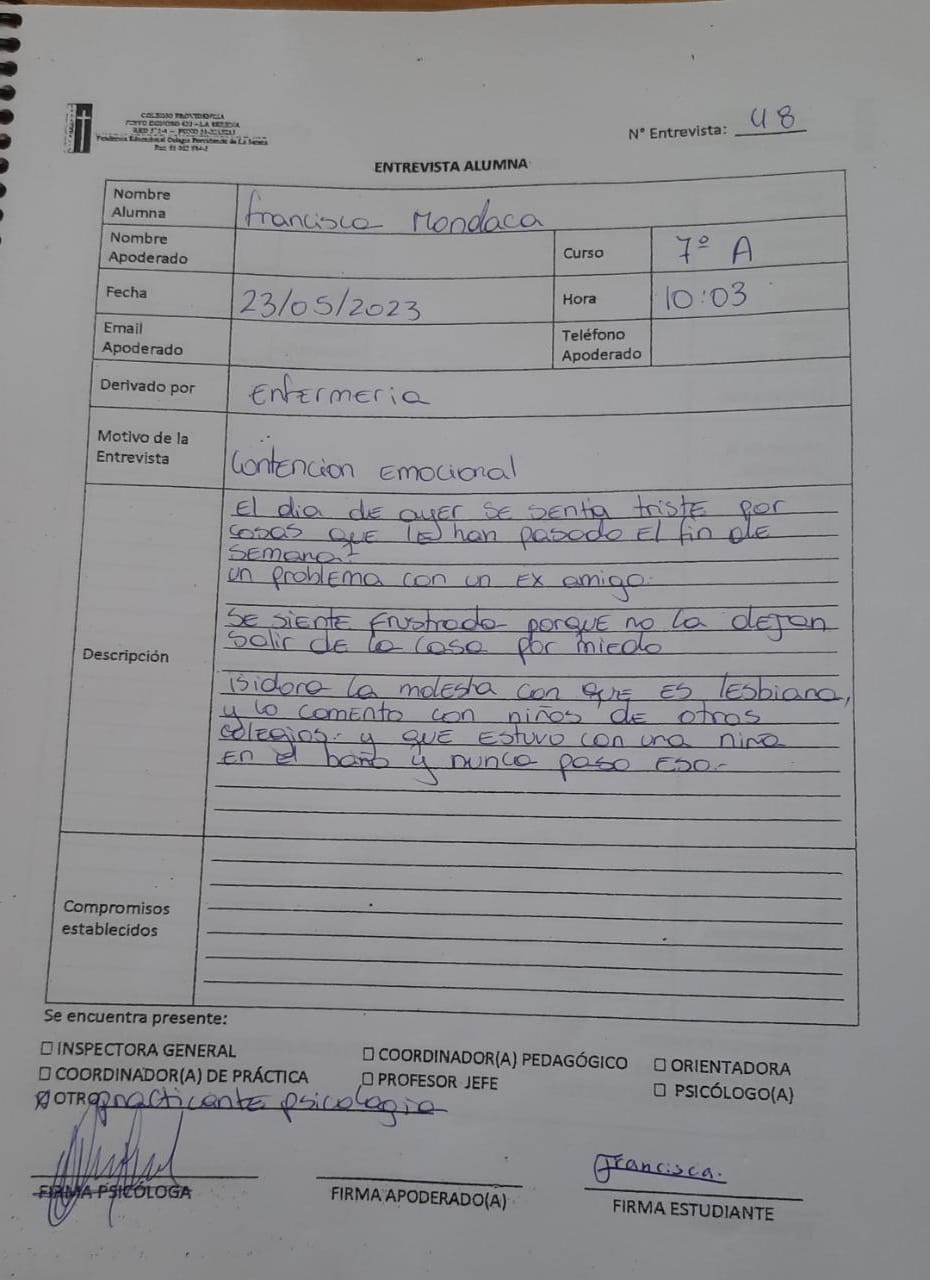 COLEGIO PROVIDENCIA
N° Entrevista: 48
ENTREVISTA ALUMNA
Nombre Alumna Francisca Mondaca
Nombre Apoderado
Curso 7º A
Fecha 23/05/2023
Hora 10:03
Email Apoderado
Teléfono Apoderado
Derivado por Enfermeria
Motivo de la Entrevista Contencion Emocional
Descripción
El dia de ayer se sentia triste por
cosas que le han pasado el fin de
semana.
un problema con un ex amigo.
Se siente frustrada porque no la dejan
salir de la casa por miedo
isidora la molesta con que es lesbiana,
y lo comento con niños de otros
colegios.- y que estuvo con una niña
en el baño y nunca paso eso.-
Compromisos establecidos
Se encuentra presente:
☐ INSPECTORA GENERAL
☐ COORDINADOR(A) PEDAGÓGICO
☐ ORIENTADORA
☐ COORDINADOR(A) DE PRÁCTICA
☐ PROFESOR JEFE
☐ PSICÓLOGO(A)
☒ OTRO practicante psicologia
FIRMA PSICÓLOGA
FIRMA APODERADO(A)
Francisca.
FIRMA ESTUDIANTE